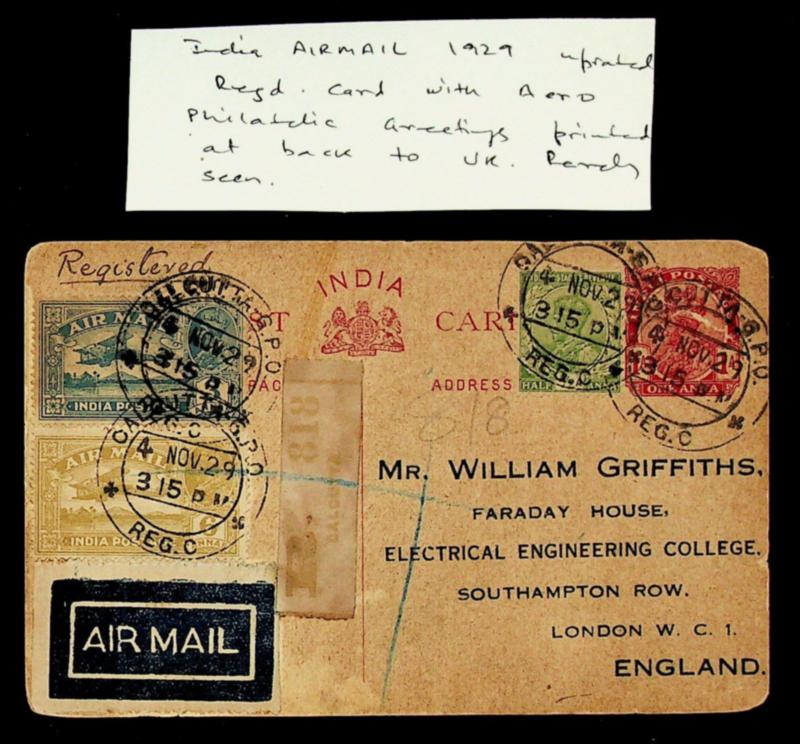 India AIRMAIL 1929 uprated
Regd. Card with Aero
Philatelic Greetings printed
at back to UK. Rarely
seen.
Registered
INDIA
POST CARD
ADDRESS
AIR MAIL
INDIA POSTAGE
CALCUTTA G.P.O.
4 NOV.29
3 15 PM
REG.C
AIR MAIL
INDIA POSTAGE
CALCUTTA G.P.O.
4 NOV.29
3 15 PM
REG.C
HALF ANNA
4 NOV.29
3 15 PM
REG.C
ONE ANNA
CALCUTTA G.P.O.
4 NOV.29
3 15 PM
REG.C
R
818
CALCUTTA
818
MR. WILLIAM GRIFFITHS,
FARADAY HOUSE,
ELECTRICAL ENGINEERING COLLEGE,
SOUTHAMPTON ROW.
LONDON W. C. 1.
ENGLAND.
AIR MAIL